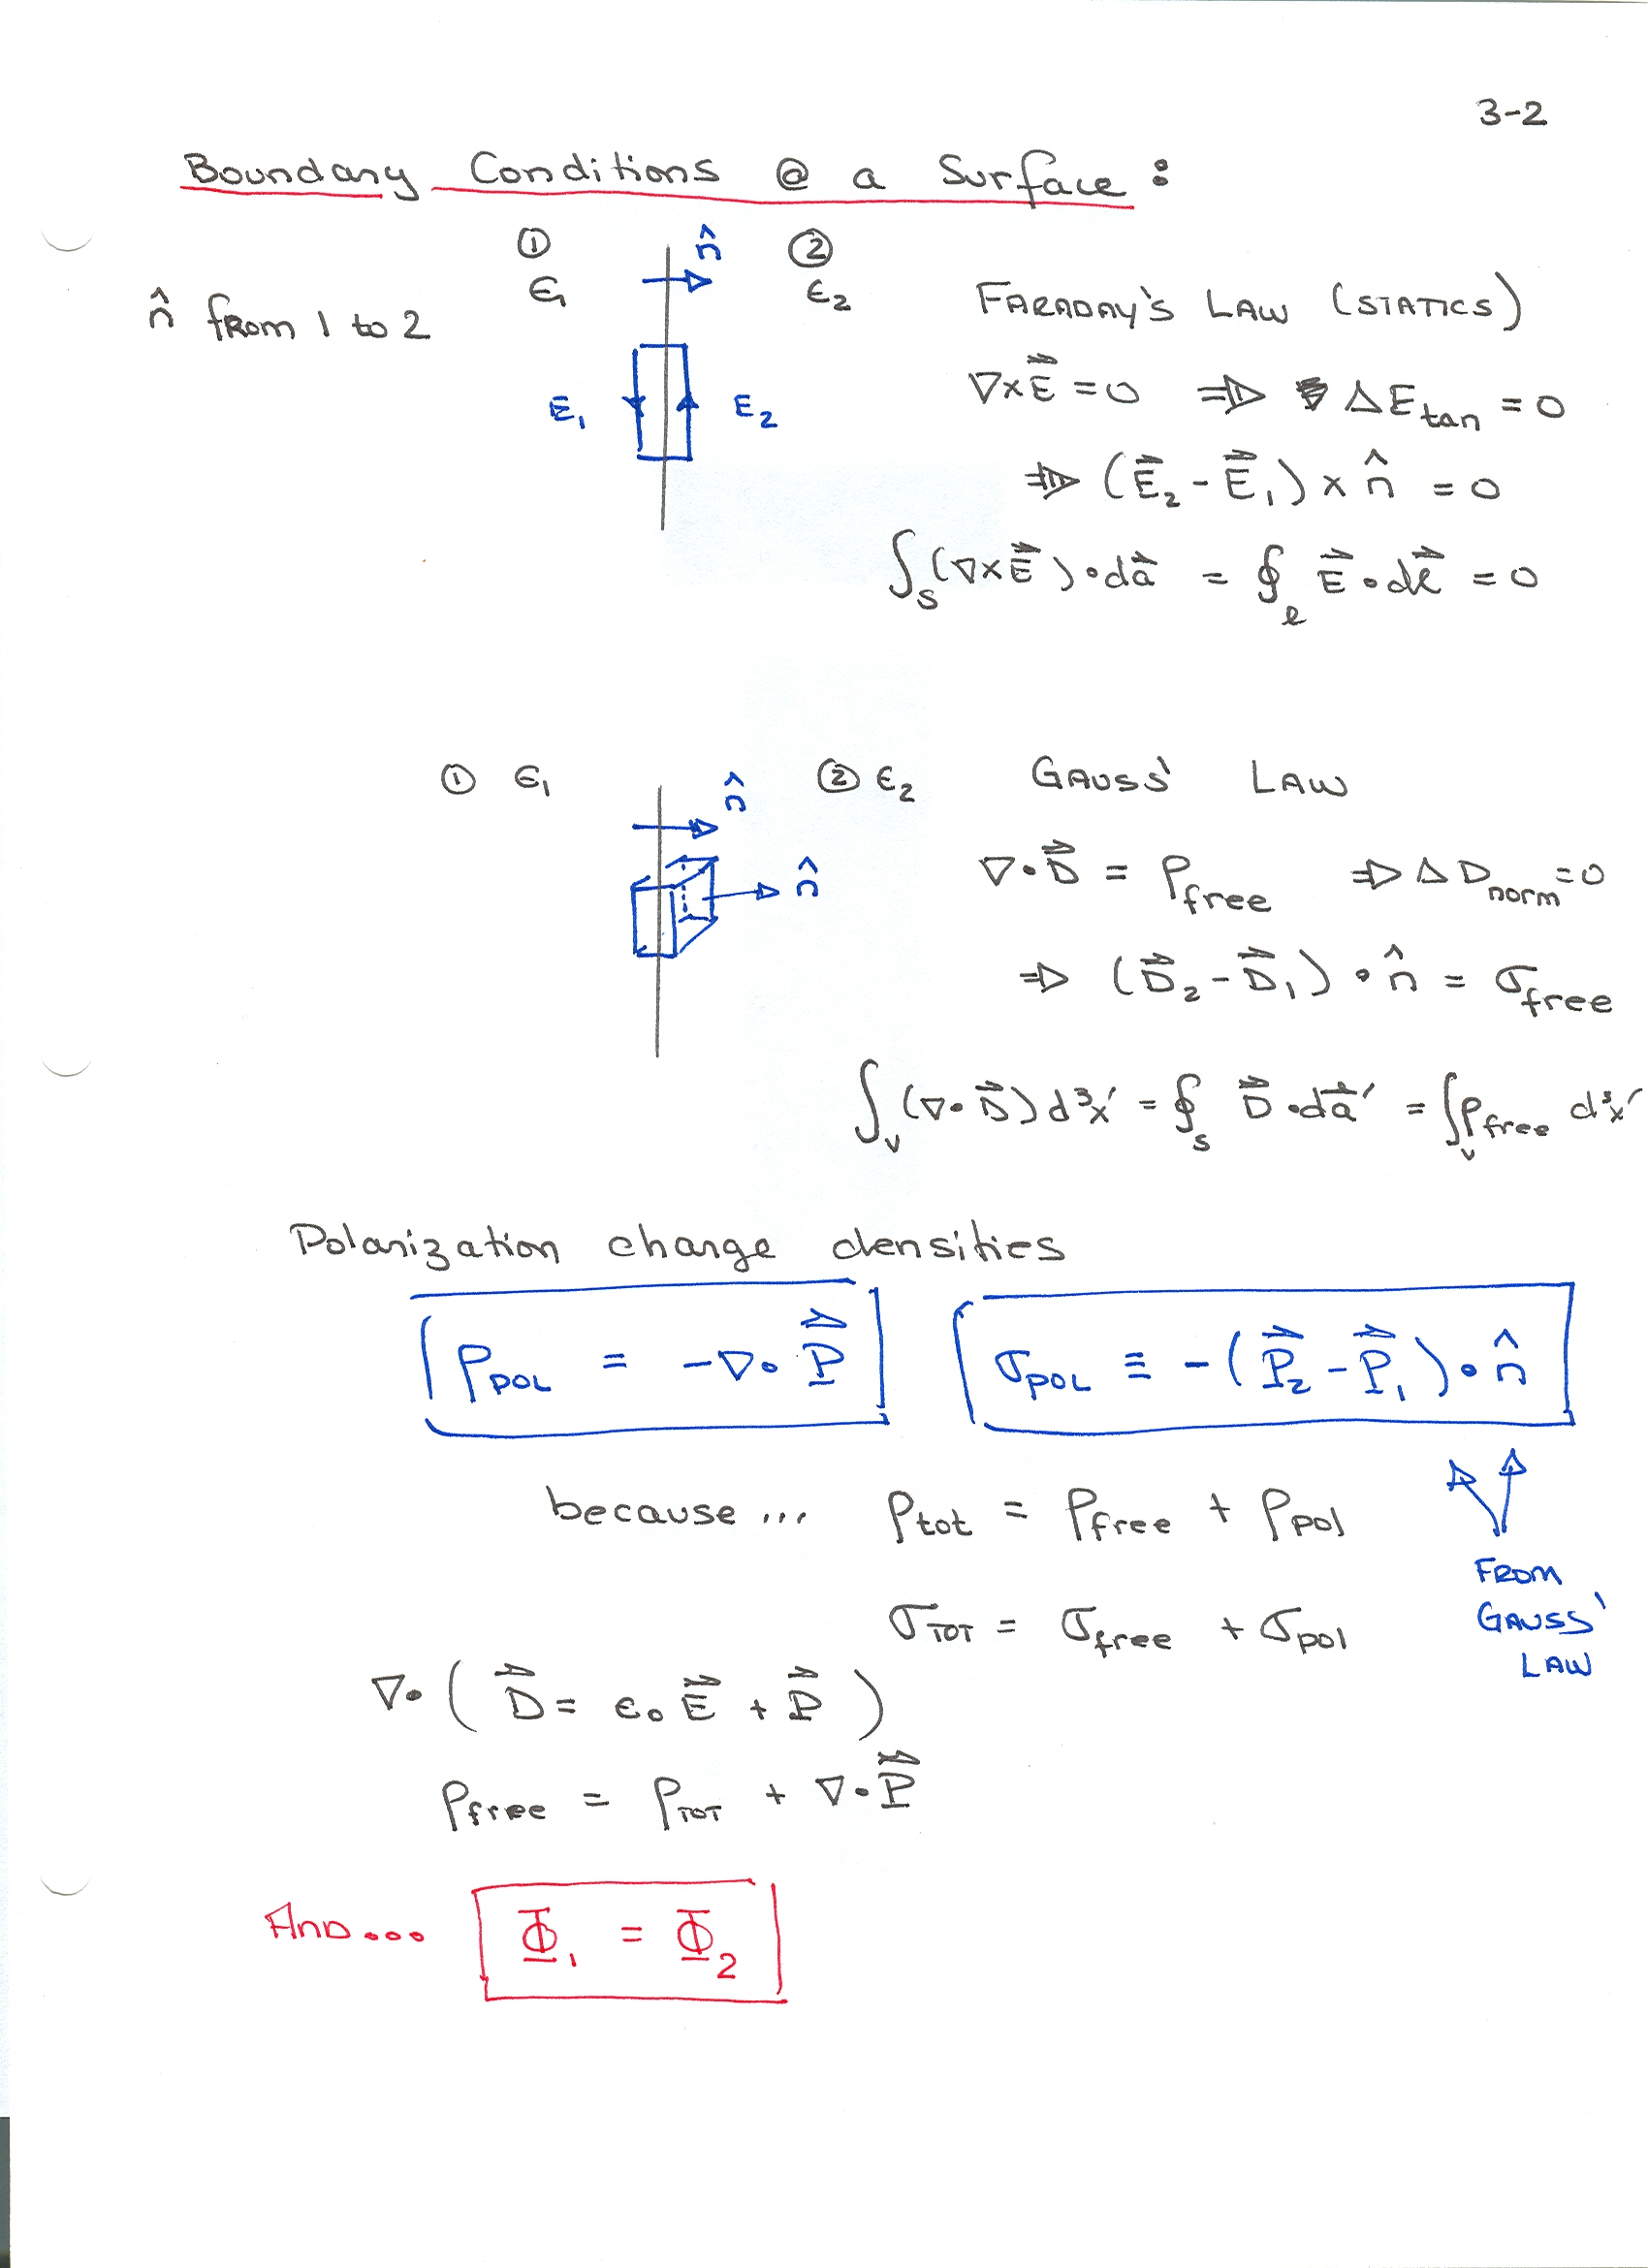 3-2
Boundary Conditions @ a Surface :
① n̂ ②
ϵ₁ ϵ₂
n̂ from 1 to 2
E₁ E₂
FARADAY'S LAW (STATICS)
∇×E⃗ = 0 ⇒ ΔE_tan = 0
⇒ (E⃗₂ - E⃗₁) × n̂ = 0
∫_S (∇×E⃗)·da⃗ = ∮_ℓ E⃗·dℓ⃗ = 0
① ϵ₁ n̂ ② ϵ₂
n̂
GAUSS' LAW
∇·D⃗ = ρ_free ⇒ ΔD_norm = 0
⇒ (D⃗₂ - D⃗₁)·n̂ = σ_free
∫_V (∇·D⃗) d³x' = ∮_S D⃗·da⃗' = ∫_V ρ_free d³x'
Polarization charge densities
ρ_POL = -∇·P⃗
σ_POL ≡ -(P⃗₂ - P⃗₁)·n̂
because... ρ_tot = ρ_free + ρ_pol
σ_TOT = σ_free + σ_pol
FROM
GAUSS'
LAW
∇·( D⃗ = ϵ₀ E⃗ + P⃗ )
ρ_free = ρ_TOT + ∇·P⃗
AND... Φ₁ = Φ₂